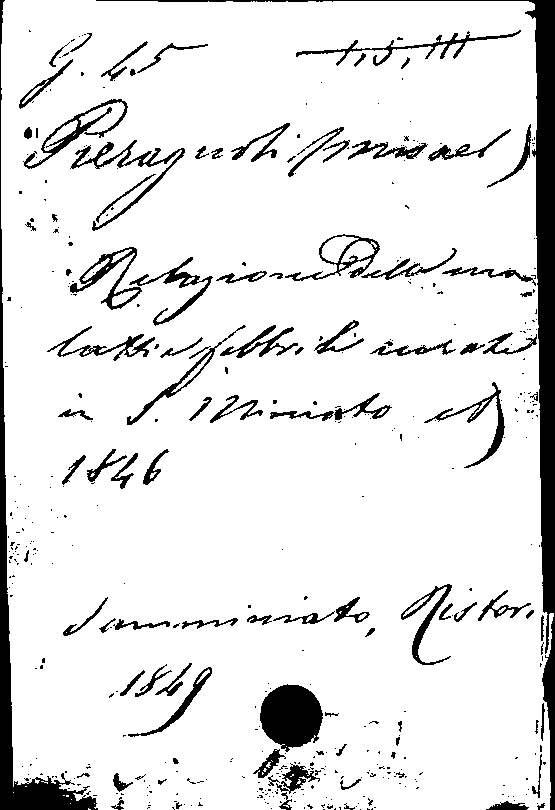 G. 45 1,5,111
Pieragnoli Misael
Relazione delle ma
lattie febbrili curate
in S. Miniato el
1846
Samminiato, Ristori
1849